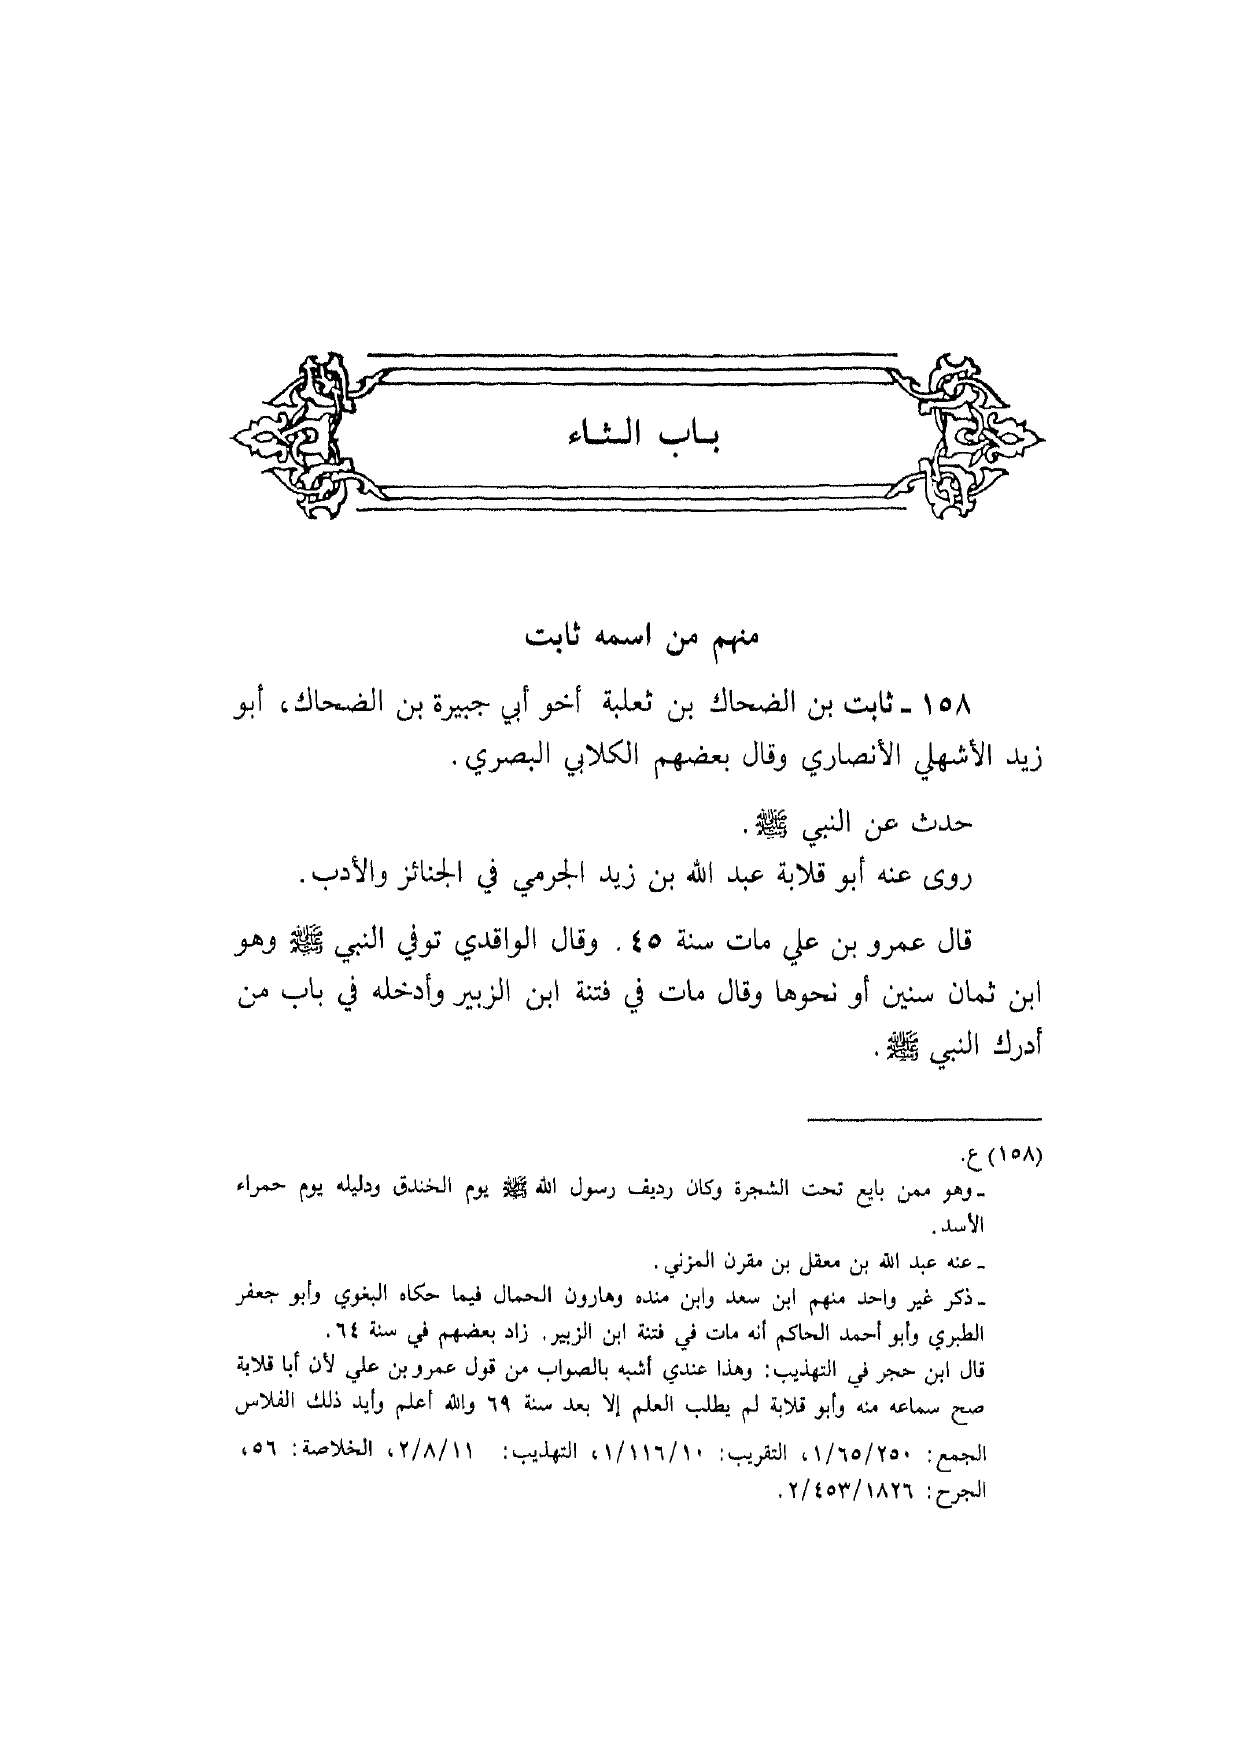 باب الثاء
منهم من اسمه ثابت
١٥٨ ـ ثابت بن الضحاك بن ثعلبة أخو أبي جبيرة بن الضحاك، أبو
زيد الأشهلي الأنصاري وقال بعضهم الكلابي البصري.
حدث عن النبي ﷺ.
روى عنه أبو قلابة عبد الله بن زيد الجرمي في الجنائز والأدب.
قال عمرو بن علي مات سنة ٤٥. وقال الواقدي توفي النبي ﷺ وهو
ابن ثمان سنين أو نحوها وقال مات في فتنة ابن الزبير وأدخله في باب من
أدرك النبي ﷺ.
(١٥٨) ع.
ـ وهو ممن بايع تحت الشجرة وكان رديف رسول الله ﷺ يوم الخندق ودليله يوم حمراء
الأسد.
ـ عنه عبد الله بن معقل بن مقرن المزني.
ـ ذكر غير واحد منهم ابن سعد وابن منده وهارون الحمال فيما حكاه البغوي وأبو جعفر
الطبري وأبو أحمد الحاكم أنه مات في فتنة ابن الزبير. زاد بعضهم في سنة ٦٤.
قال ابن حجر في التهذيب: وهذا عندي أشبه بالصواب من قول عمرو بن علي لأن أبا قلابة
صح سماعه منه وأبو قلابة لم يطلب العلم إلا بعد سنة ٦٩ والله أعلم وأيد ذلك الفلاس
الجمع: ١/٦٥/٢٥٠، التقريب: ١/١١٦/١٠، التهذيب: ٢/٨/١١، الخلاصة: ٥٦،
الجرح: ٢/٤٥٣/١٨٢٦.